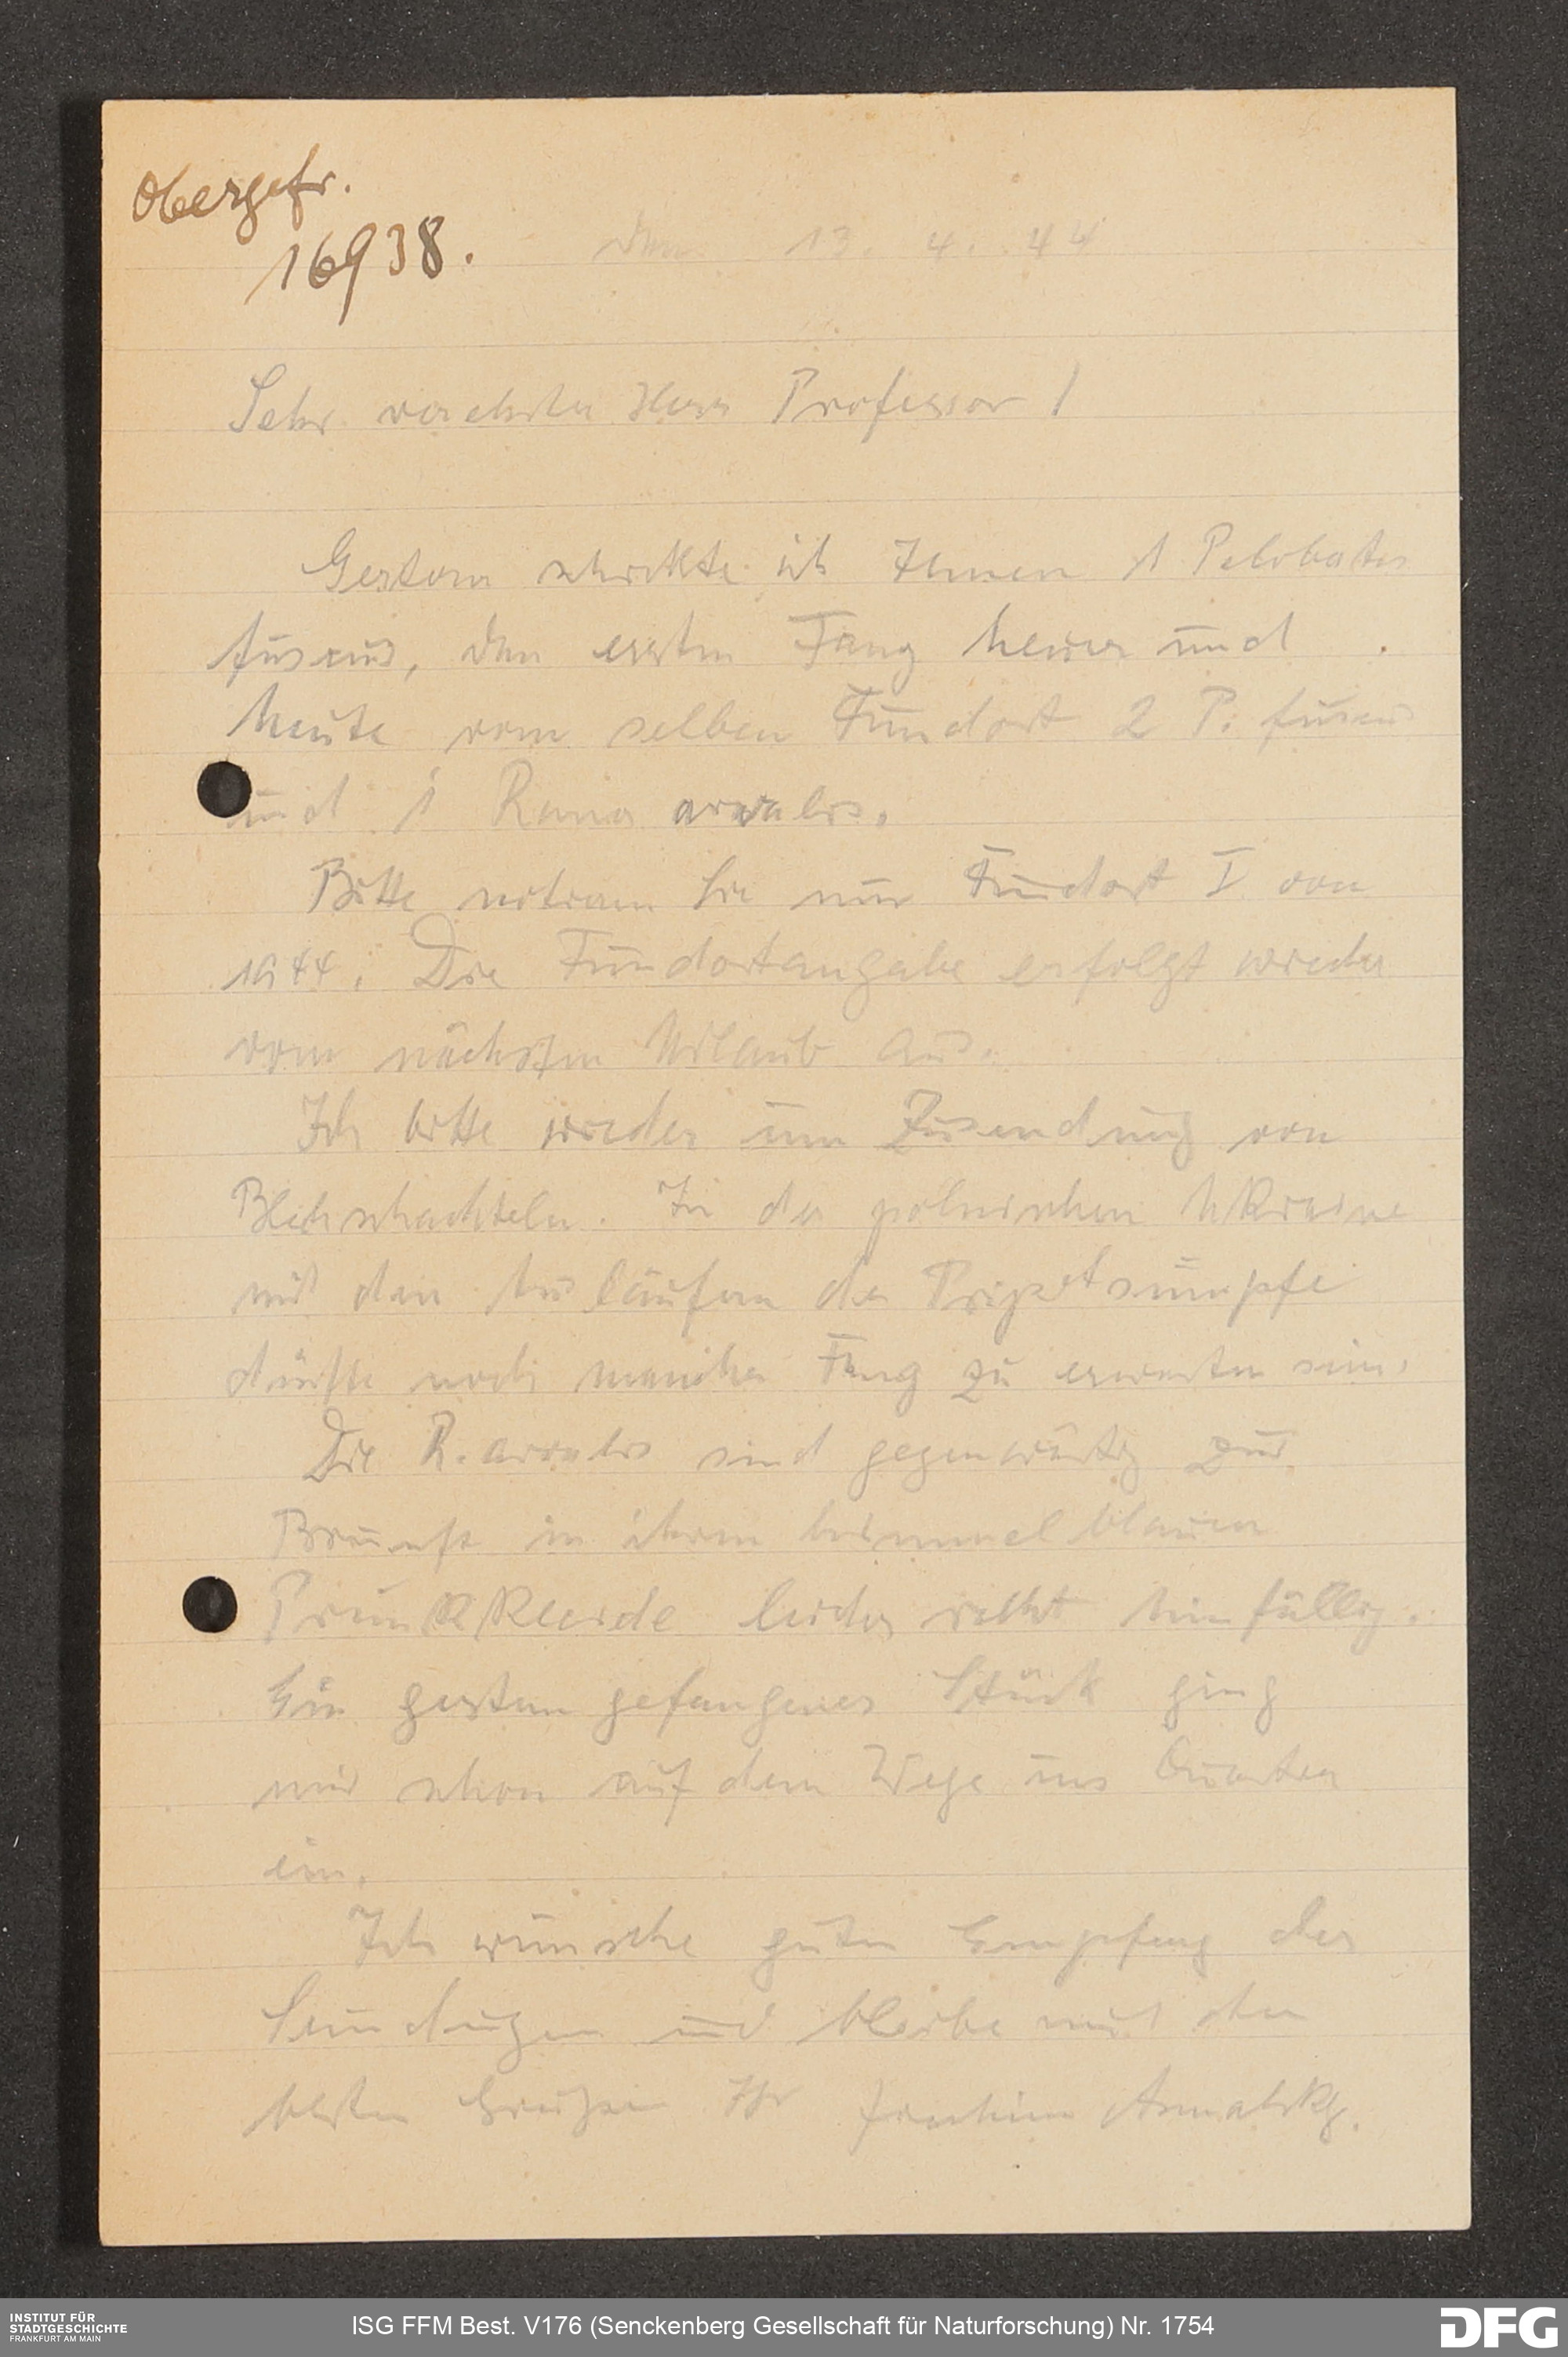 Obergefr.
16938.
den 13. 4. 44
Sehr verehrter Herr Professor!
Gestern schickte ich Ihnen 1 Pelobates
fuscus, den ersten Fang heuer und
heute vom selben Fundort 2 P. fuscus
und 1 Rana arvalis.
Bitte notieren Sie nur Fundort I von
1944. Die Fundortangabe erfolgt wieder
vom nächsten Urlaub aus.
Ich bitte wieder um Zusendung von
Blechschachteln. In der polnischen Ukraine
mit den Ausläufern der Pripetsümpfe
dürfte noch mancher Fang zu erwarten sein.
Die R. arvalis sind gegenwärtig zur
Brunft in ihrem himmelblauen
Prunkkleide leider recht hinfällig.
Ein gestern gefangenes Stück ging
mir schon auf dem Wege ins Quartier
ein.
Ich wünsche guten Empfang der
Sendungen und bleibe mit den
besten Grüßen Ihr Joachim
INSTITUT FÜR
STADTGESCHICHTE
FRANKFURT AM MAIN
ISG FFM Best. V176 (Senckenberg Gesellschaft für Naturforschung) Nr. 1754
DFG